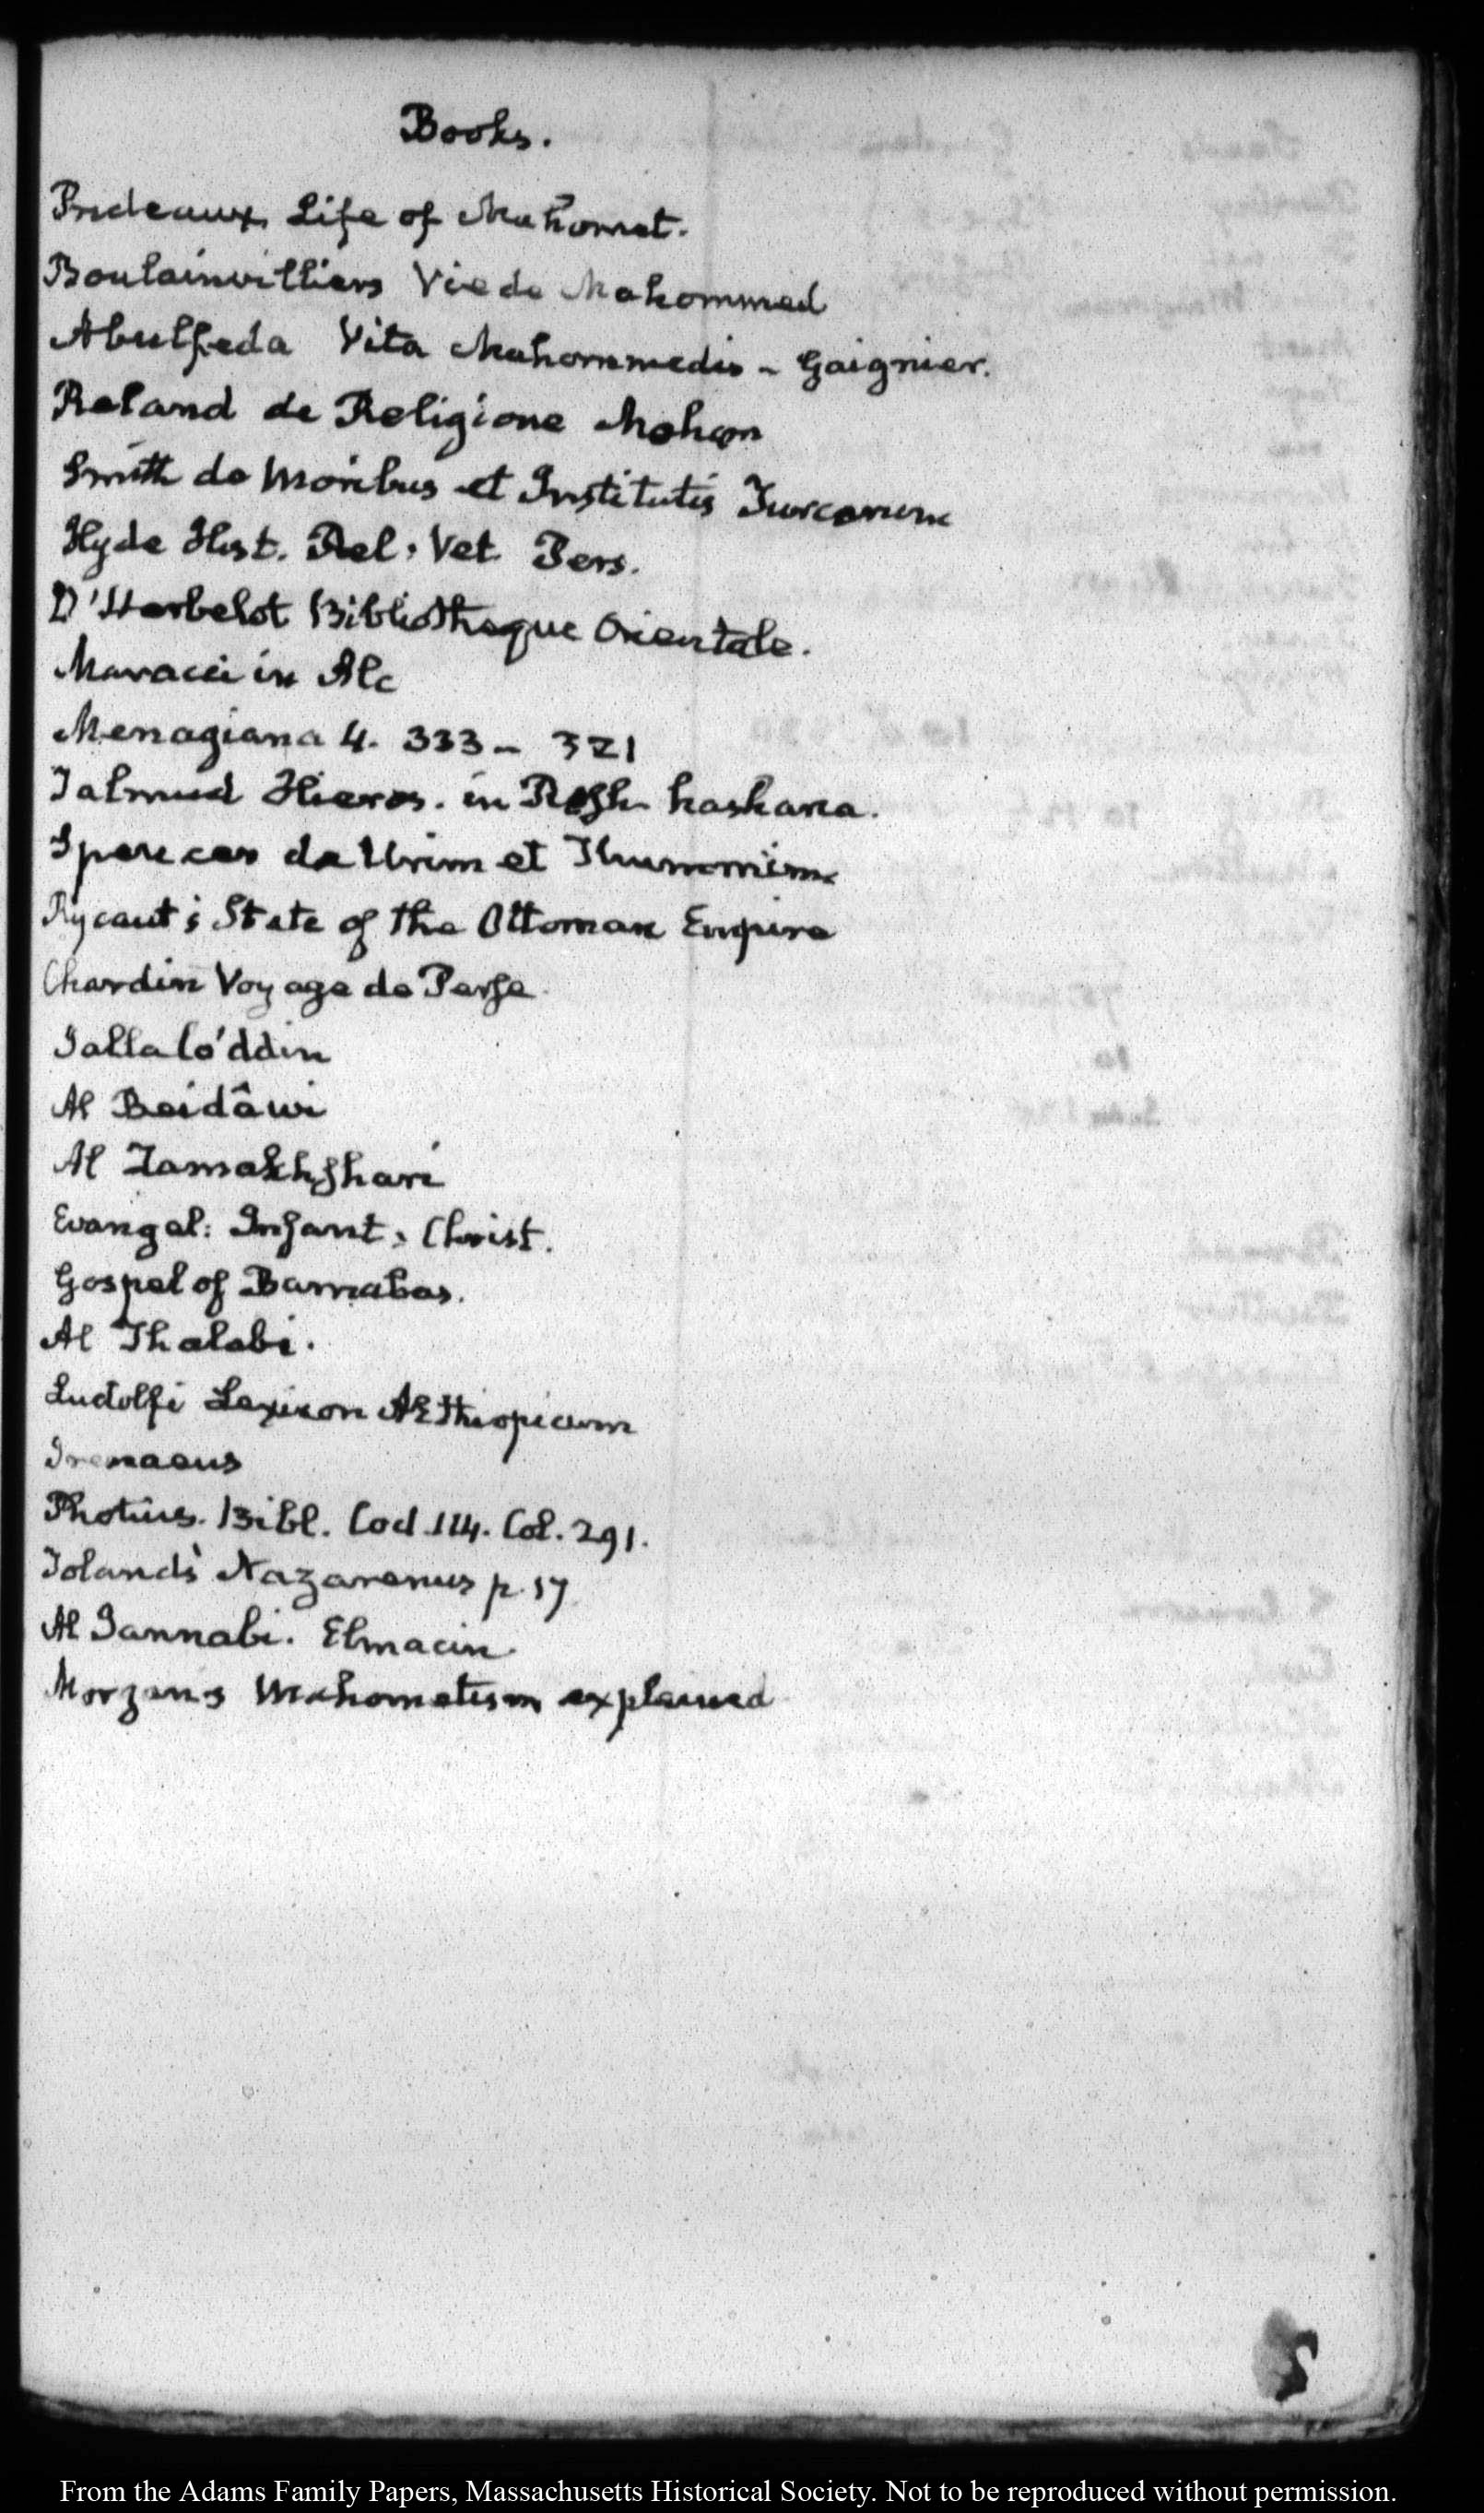 Books.
Prideaux Life of Mahomet.
Boulainvilliers Vie de Mahommed
Abulfeda Vita Mahommedis - Gaignier.
Reland de Religione Moham
Smith de Moribus et Institutis Turcarum
Hyde Hist. Rel. Vet. Pers.
D'Herbelot Bibliotheque Orientale.
Maracci in Alc
Menagiana 4. 333 - 321
Talmud Hieros. in Rosh hashana.
Spencer de Urim et Thummim
Rycaut's State of the Ottoman Empire
Chardin Voyage de Perse.
Jallalo'ddin
Al Beidâwi
Al Zamakhshari
Evangel: Infant. Christ.
Gospel of Barnabas.
Al Thalabi.
Ludolfi Lexicon AEthiopicum
Irenaeus
Photius. Bibl. Cod. 114. Col. 291.
Toland's Nazarenus p. 17
Al Jannabi. Elmacin.
Morgan's Mahometism explained
From the Adams Family Papers, Massachusetts Historical Society. Not to be reproduced without permission.